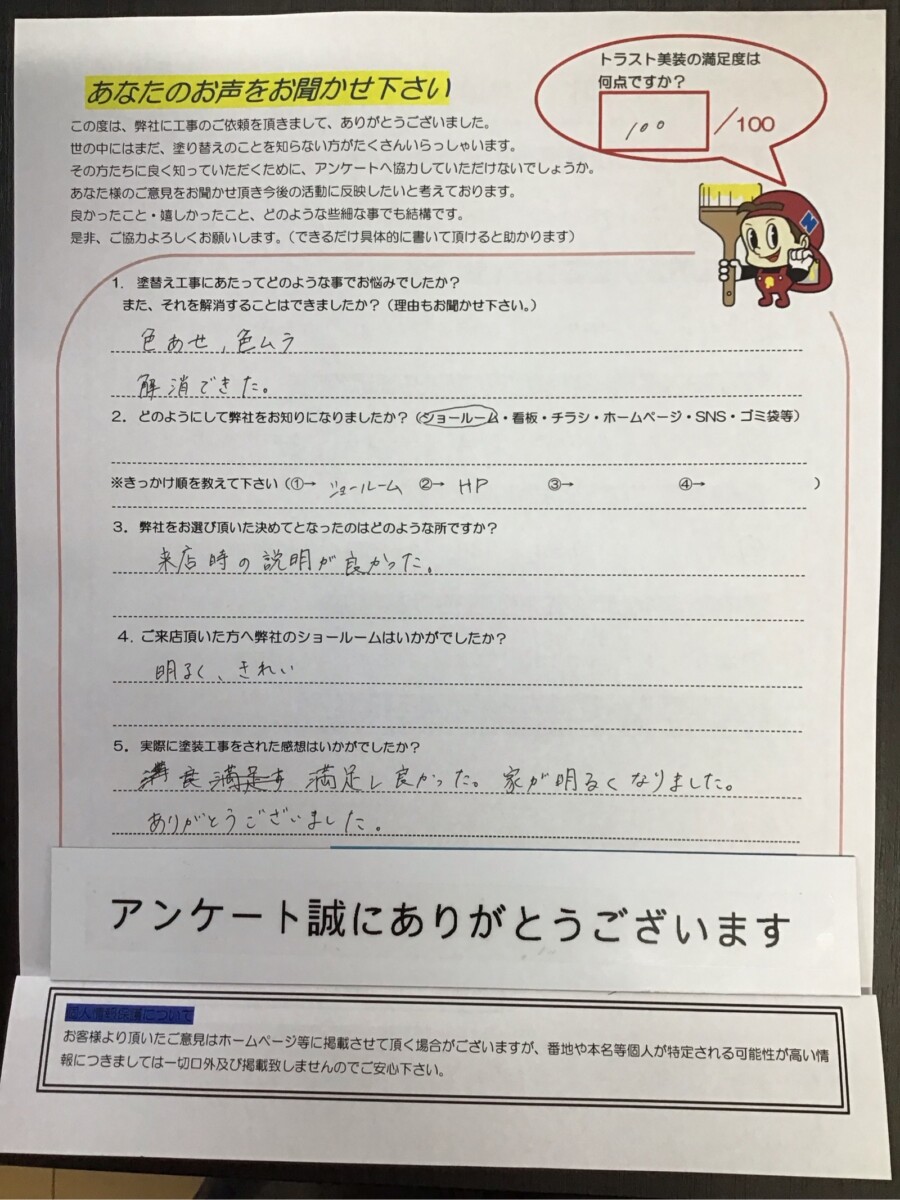 あなたのお声をお聞かせ下さい
トラスト美装の満足度は
何点ですか？
100 /100
この度は、弊社に工事のご依頼を頂きまして、ありがとうございました。
世の中にはまだ、塗り替えのことを知らない方がたくさんいらっしゃいます。
その方たちに良く知っていただくために、アンケートへ協力していただけないでしょうか。
あなた様のご意見をお聞かせ頂き今後の活動に反映したいと考えております。
良かったこと・嬉しかったこと、どのような些細な事でも結構です。
是非、ご協力よろしくお願いします。（できるだけ具体的に書いて頂けると助かります）
1. 塗替え工事にあたってどのような事でお悩みでしたか？
また、それを解消することはできましたか？（理由もお聞かせ下さい。）
色あせ、色ムラ
解消できた。
2. どのようにして弊社をお知りになりましたか？（ショールーム・看板・チラシ・ホームページ・SNS・ゴミ袋等）
※きっかけ順を教えて下さい（①→ ショールーム ②→ HP ③→ ④→ ）
3. 弊社をお選び頂いた決めてとなったのはどのような所ですか？
来店時の説明が良かった。
4. ご来店頂いた方へ弊社のショールームはいかがでしたか？
明るく、きれい
5. 実際に塗装工事をされた感想はいかがでしたか？
満足し良かった。家が明るくなりました。
ありがとうございました。
アンケート誠にありがとうございます
個人情報保護について
お客様より頂いたご意見はホームページ等に掲載させて頂く場合がございますが、番地や本名等個人が特定される可能性が高い情
報につきましては一切口外及び掲載致しませんのでご安心下さい。